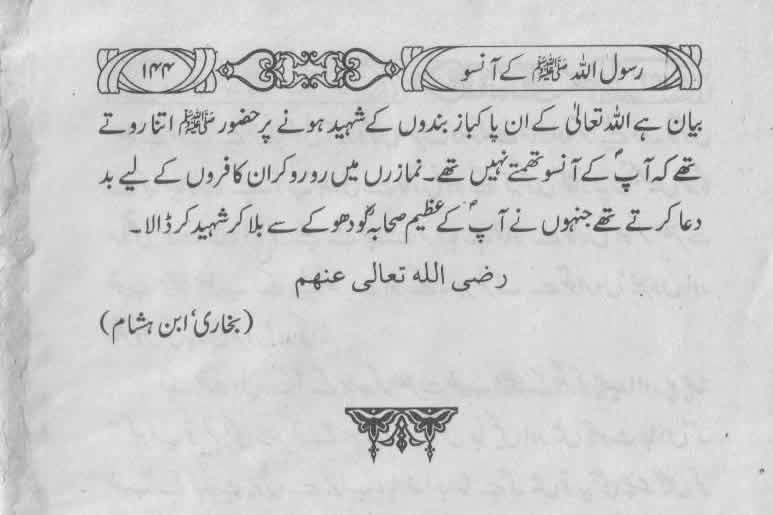 رسول اللہ ﷺ کے آنسو
۱۴۴
بیان ہے اللہ تعالیٰ کے ان پاکباز بندوں کے شہید ہونے پر حضور ﷺ اتنا روتے
تھے کہ آپؐ کے آنسو تھمتے نہیں تھے۔ نمازرں میں رو رو کر ان کافروں کے لیے بد
دعا کرتے تھے جنہوں نے آپؐ کے عظیم صحابہؓ کو دھوکے سے بلا کر شہید کر ڈالا۔
رضى الله تعالى عنهم
(بخاری، ابن ہشام)